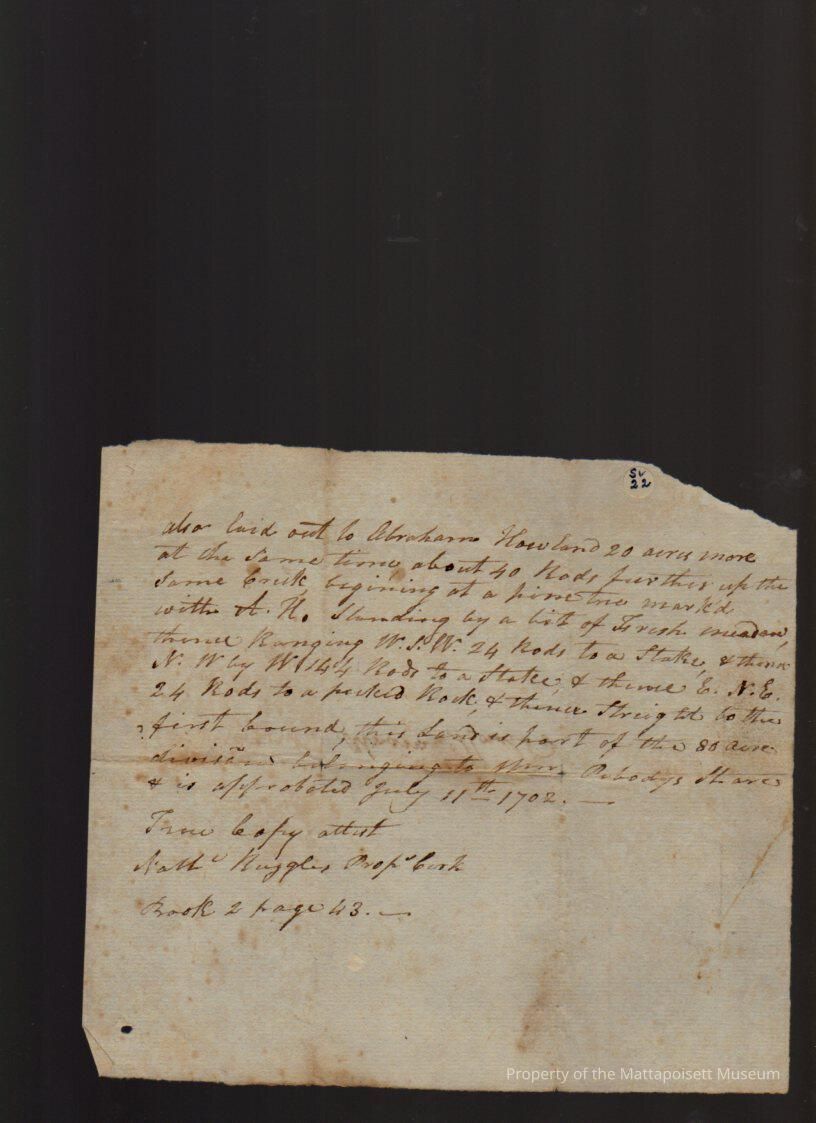 Sv
22
also laid out to Abraham Howland 20 acres more
at the same time about 40 Rods further up the
same Creek, begining at a pine tree mark'd
with A. H. Standing by a bit of Fresh meadow,
thence Ranging W. S. W. 24 Rods to a Stake, & thence
N. W by W 144 Rods to a Stake, & thence E. N. E.
24 Rods to a pecked Rock, & thence Streight to the
first bound, this Land is part of the 80 acre
division belonging to Pebodys Share
& is approbated July 11th 1702. —
True Copy attest
Nathl Ruggles Propr Cerk
Book 2 page 43. —
Property of the Mattapoisett Museum